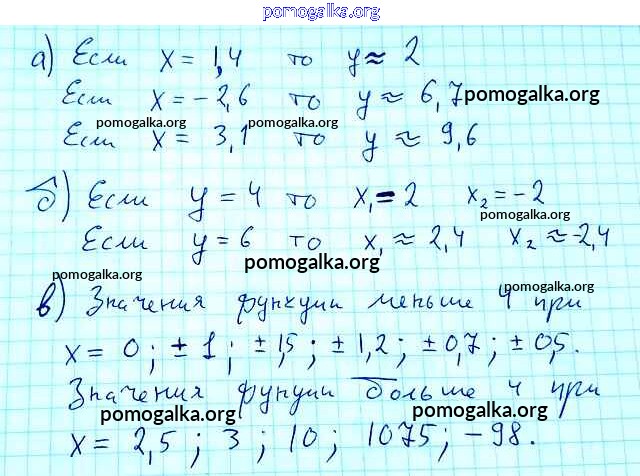 pomogalka.org
а) Если x = 1,4 то y ≈ 2
Если x = -2,6 то y ≈ 6,7 pomogalka.org
pomogalka.org pomogalka.org
Если x = 3,1 то y ≈ 9,6
б) Если y = 4 то x₁ = 2 x₂ = -2
pomogalka.org
Если y = 6 то x₁ ≈ 2,4 x₂ ≈ -2,4
pomogalka.org
pomogalka.org
pomogalka.org
в) Значения функции меньше 4 при
x = 0; ± 1; ± 1,5; ± 1,2; ± 0,7; ± 0,5.
Значения функции больше 4 при
pomogalka.org pomogalka.org
x = 2,5; 3; 10; 1075; -98.